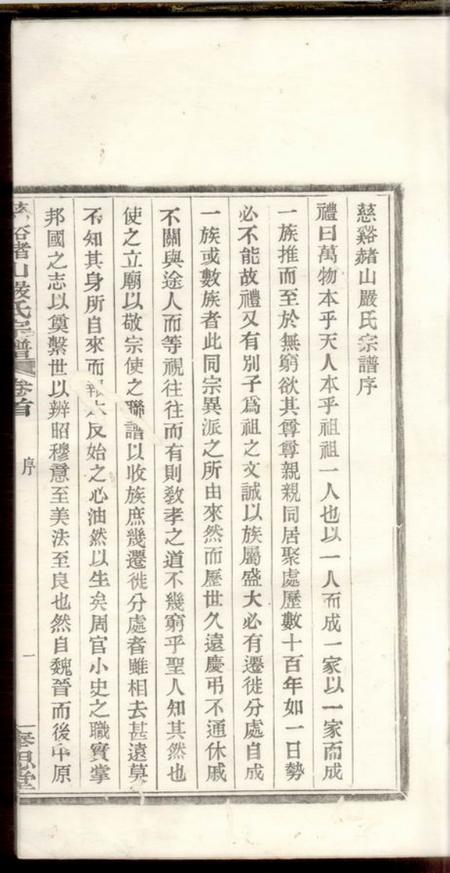 慈谿赭山嚴氏宗譜序
禮曰萬物本乎天人本乎祖祖一人也以一人而成一家以一家而成
一族推而至於無窮欲其尊尊親親同居聚處歷數十百年如一日勢
必不能故禮又有別子爲祖之文誠以族屬盛大必有遷徙分處自成
一族或數族者此同宗異派之所由來然而歷世久遠慶弔不通休戚
不關與途人而等視往往而有則敎孝之道不幾窮乎聖人知其然也
使之立廟以敬宗使之聯譜以收族庶幾遷徙分處者雖相去甚遠莫
不知其身所自來而報本反始之心油然以生矣周官小史之職實掌
邦國之志以奠繫世以辨昭穆意至美法至良也然自魏晉而後中原
慈谿赭山嚴氏宗譜 卷首 序 一